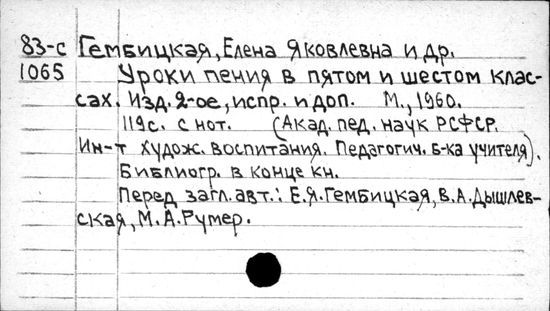 83-с Гембицкая, Елена Яковлевна и др.
1065 Уроки пения в пятом и шестом клас-
сах. Изд. 2-ое, испр. и доп. М., 1960.
119с. с нот. (Акад. пед. наук РСФСР.
Ин-т худож. воспитания. Педагогич. б-ка учителя).
Библиогр. в конце кн.
Перед загл. авт.: Е.Я.Гембицкая, В.А.Дышлев-
ская, М.А.Румер.